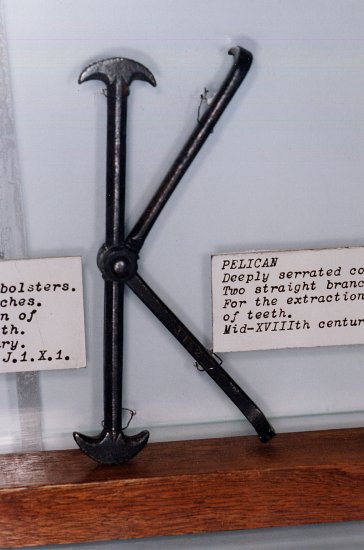 bolsters.
ches.
n of
th.
ry.
J.1.X.1.
PELICAN
Deeply serrated
Two straight
For the extraction
of teeth.
Mid-XVIIIth centur